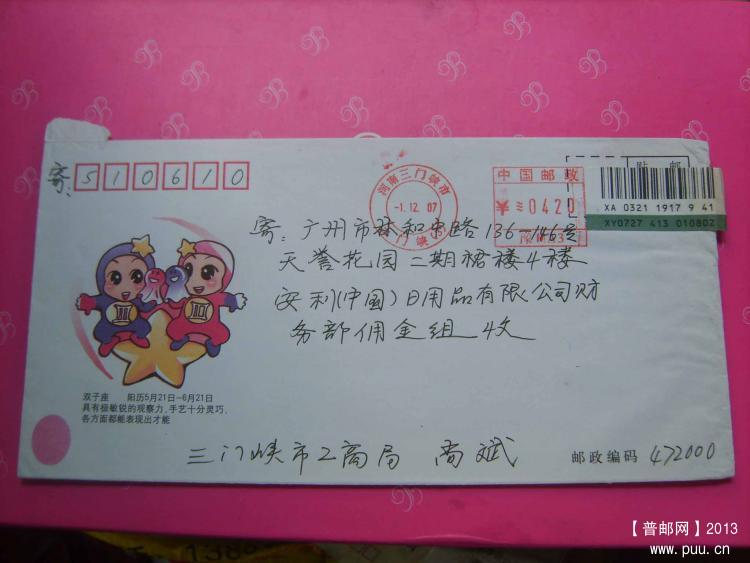 寄: 510610
河南三门峡市
-1.12 07
三门峡
中国邮政
¥ 0420
贴 邮
XA 0321 1917 9 41
XY0727 413 010802
寄: 广州市林和中路136-146号
天誉花园二期裙楼4楼
安利(中国)日用品有限公司财
务部佣金组 收
双子座 阳历5月21日-6月21日
具有极敏锐的观察力,手艺十分灵巧,
各方面都能表现出才能
三门峡市工商局 尚斌
邮政编码 472000
【普邮网】2013
www.puu.cn